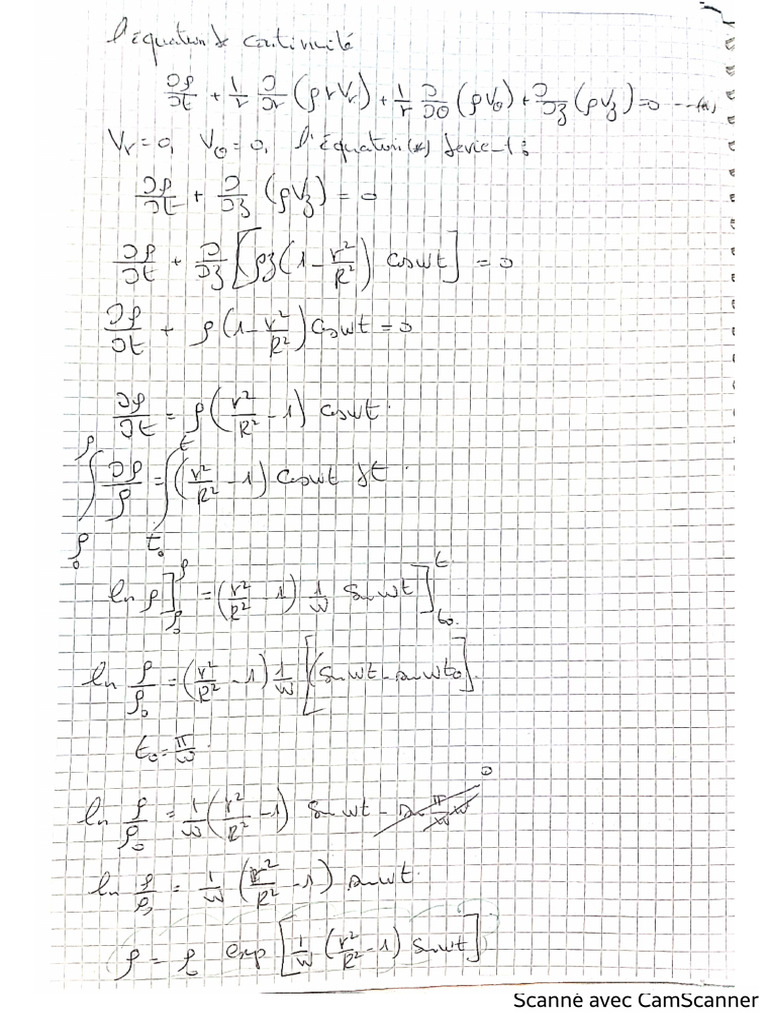 l'équation de continuité
∂ρ/∂t + 1/r ∂/∂r (ρ r Vr) + 1/r ∂/∂θ (ρ Vθ) + ∂/∂z (ρ Vz) = 0 --- (*)
Vr = 0, Vθ = 0, l'équation (*) devient :
∂ρ/∂t + ∂/∂z (ρ Vz) = 0
∂ρ/∂t + ∂/∂z [ρ z (1 - r²/R²) cos wt] = 0
∂ρ/∂t + ρ (1 - r²/R²) cos wt = 0
∂ρ/∂t = ρ (r²/R² - 1) cos wt.
∫_ρ₀^ρ ∂ρ/ρ = ∫_t₀^t (r²/R² - 1) cos wt dt.
ln ρ ]_ρ₀^ρ = (r²/R² - 1) 1/w sin wt ]_t₀^t
ln ρ/ρ₀ = (r²/R² - 1) 1/w [(sin wt - sin wt₀].
t₀ = π/w.
ln ρ/ρ₀ = 1/w (r²/R² - 1) sin wt - sin π/w w 0
ln ρ/ρ₀ = 1/w (r²/R² - 1) sin wt.
ρ = ρ₀ exp [1/w (r²/R² - 1) sin wt]
Scanné avec CamScanner